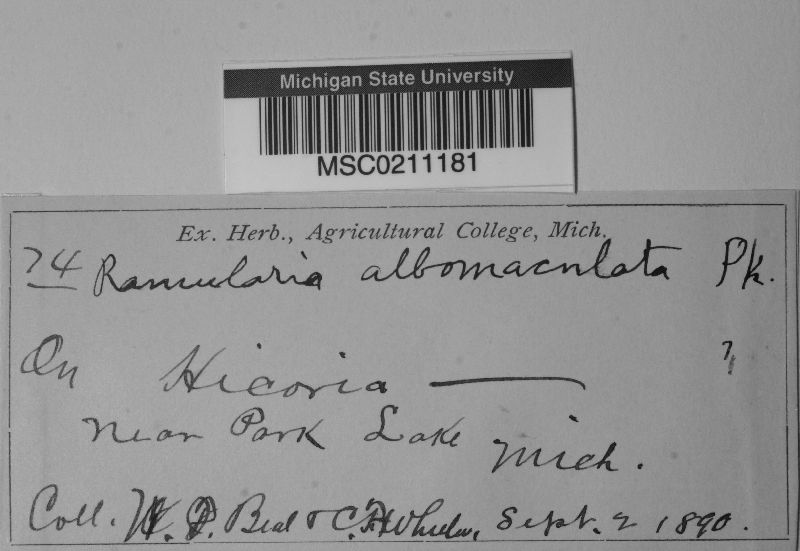 Michigan State University
MSC0211181
Ex. Herb., Agricultural College, Mich.
74 Ramularia albomaculata Pk.
On Hicoria — ?
near Park Lake Mich.
Coll. W. J. Beal & C. F. Wheeler, Sept. 2 1890.